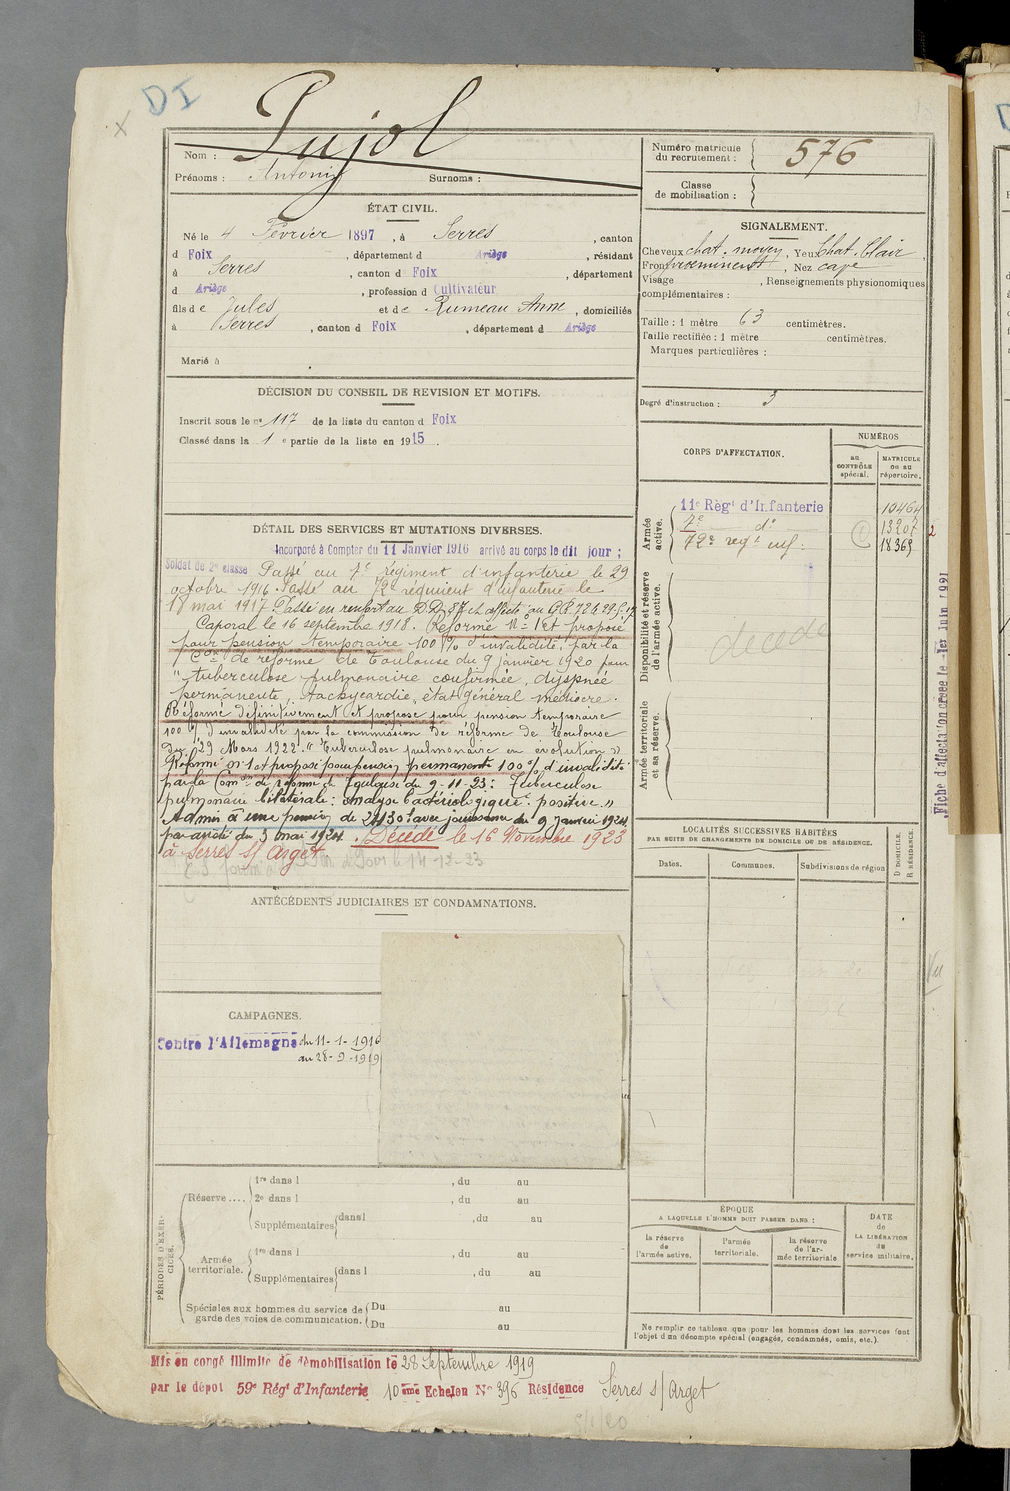 DI
Nom : Pujol
Prénoms : Antonin Surnoms :
Numéro matricule du recrutement : 576
Classe de mobilisation :
ÉTAT CIVIL.
Né le 4 Février 1897, à Serres, canton
d Foix, département d Ariège, résidant
à Serres, canton d Foix, département
d Ariège, profession d Cultivateur
fils de Jules et de Rumeau Anne, domiciliés
à Serres, canton d Foix, département d Ariège
Marié à
SIGNALEMENT.
Cheveux chat. moyen, Yeux Chat. Clair
Front proeminent, Nez cave
Visage , Renseignements physionomiques
complémentaires :
Taille : 1 mètre 63 centimètres.
Taille rectifiée : 1 mètre centimètres.
Marques particulières :
Degré d'instruction : 3
DÉCISION DU CONSEIL DE REVISION ET MOTIFS.
Inscrit sous le n° 117 de la liste du canton d Foix
Classé dans la 1e partie de la liste en 1915.
CORPS D'AFFECTATION.
NUMÉROS
au CONTRÔLE spécial.
MATRICULE ou au répertoire.
Armée active.
11e Règt d'Infanterie 10464
7e d° 13207
72e regt inf. 18365
2
Disponibilité et réserve de l'armée active.
décédé
Armée territoriale et sa réserve.
DÉTAIL DES SERVICES ET MUTATIONS DIVERSES.
Incorporé à Compter du 11 Janvier 1916 arrivé au corps le dit jour ;
Soldat de 2e classe Passé au 7e régiment d'infanterie le 29
octobre 1916. Passé au 72e régiment d'infanterie le
18 mai 1917. Passé en renfort au
Caporal le 16 septembre 1918. Réformé N° 1 et proposé
pour pension temporaire 100 % d'invalidité, par la
Con de réforme de Toulouse du 9 janvier 1920 pour
"tuberculose pulmonaire confirmée, dyspnée
permanente, tachycardie, état général médiocre.
Réformé définitivement et proposé pour pension temporaire
100 % d'invalidité par la commission de réforme de Toulouse
du 29 Mars 1922. "Tuberculose pulmonaire en évolution"
Réformé n° 1 et proposé pour pension permanente 100 % d'invalidité
par la Comon de réforme de Toulouse du 9-11-23 : Tuberculose
pulmonaire bilatérale : analyse bactériologique positive."
Admis à une pension de avec jouissance du 9 janvier 1924
par arrêté du 3 mai 1924. Décédé le 16 Novembre 1923
à Serres s/ Arget
14-12-23
LOCALITÉS SUCCESSIVES HABITÉES
PAR SUITE DE CHANGEMENTS DE DOMICILE OU DE RÉSIDENCE.
Dates.
Communes.
Subdivisions de région
D DOMICILE.
R RÉSIDENCE.
Vu
Fiche d'affectation créée le 1er juin 1921
ANTÉCÉDENTS JUDICIAIRES ET CONDAMNATIONS.
CAMPAGNES.
Contre l'Allemagne du 11-1-1916
au 28-9-1919
PÉRIODES D'EXERCICES.
Réserve....
1re dans l , du au
2e dans l , du au
Supplémentaires dans l , du au
Armée territoriale.
1re dans l , du au
Supplémentaires dans l , du au
Spéciales aux hommes du service de garde des voies de communication.
Du au
Du au
ÉPOQUE
A LAQUELLE L'HOMME DOIT PASSER DANS :
la réserve de l'armée active.
l'armée territoriale.
la réserve de l'armée territoriale
DATE de LA LIBÉRATION du service militaire.
Ne remplir ce tableau que pour les hommes dont les services font
l'objet d'un décompte spécial (engagés, condamnés, omis, etc.).
Mis en congé illimité de démobilisation le 28 Septembre 1919
par le dépôt 59e Régt d'Infanterie 10ème Echelon N° 396 Résidence Serres s/ Arget